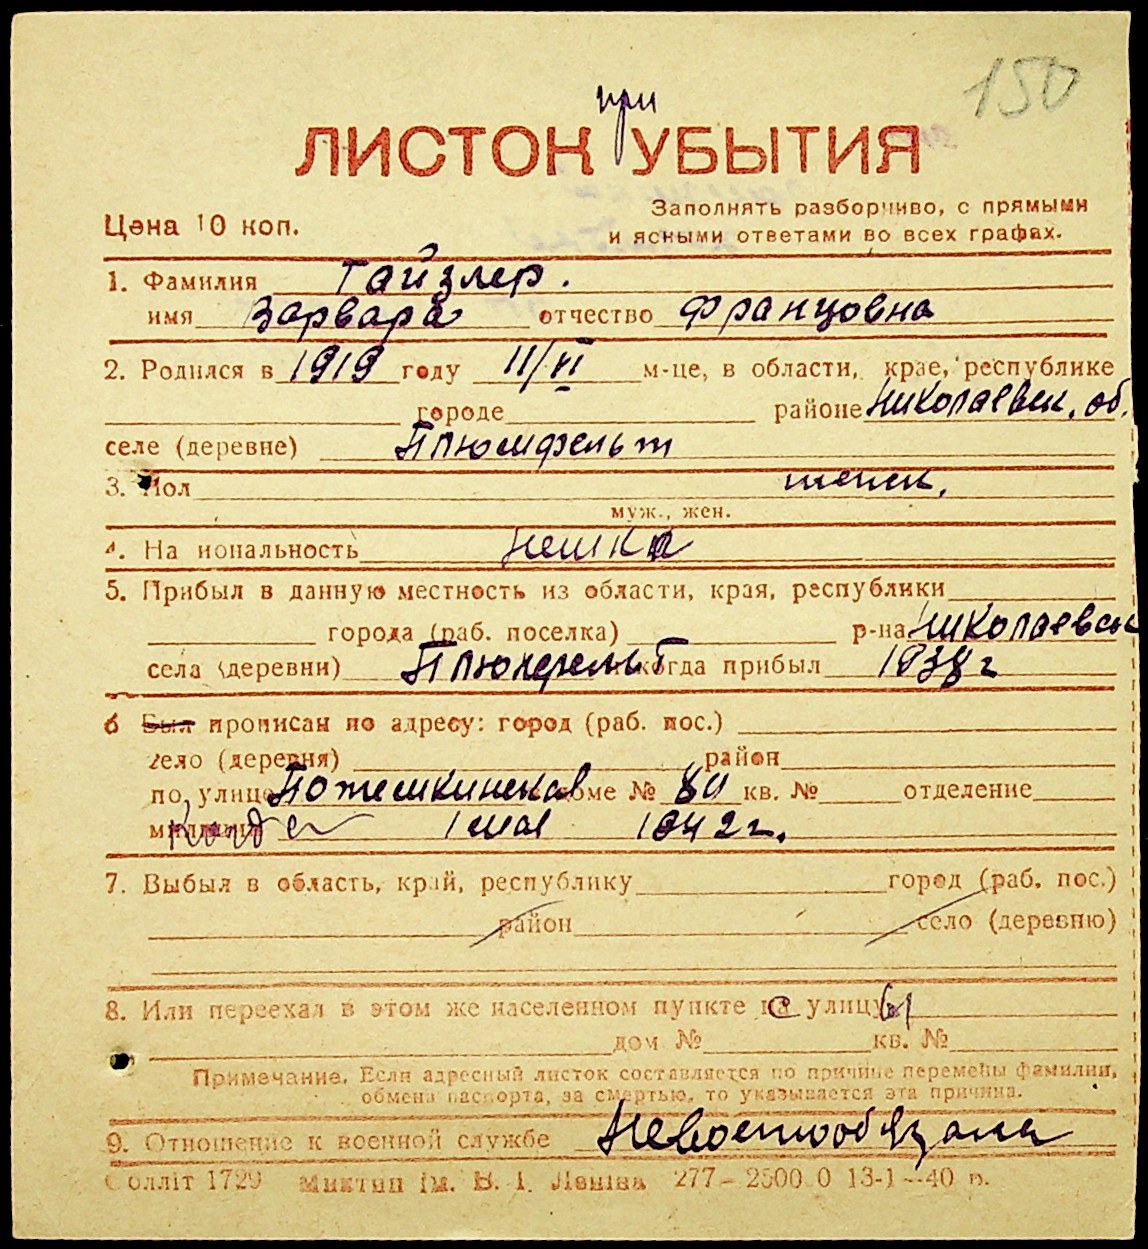 150
при
ЛИСТОК УБЫТИЯ
Цена 10 коп.
Заполнять разборчиво, с прямыми
и ясными ответами во всех графах.
1. Фамилия Гайзлер.
имя Варвара отчество Францовна
2. Родился в 1919 году 11/VI м-це, в области, крае, республике
городе районе Николаевск. об.
селе (деревне) Плюмфельт
3. Пол женск.
муж., жен.
4. На иональность немка
5. Прибыл в данную местность из области, края, республики
города (раб. поселка) р-на Николаевск
села (деревни) когда прибыл 1938 г
6 Был прописан по адресу: город (раб. пос.)
село (деревня) район
по улице Потемкинская доме № кв. № отделение
милиции 1 мая 1942 г.
7. Выбыл в область, край, республику город (раб. пос.)
район село (деревню)
8. Или переехал в этом же населенном пункте с улицы
дом № кв. №
Примечание. Если адресный листок составляется по причине перемены фамилии,
обмена паспорта, за смертью, то указывается эта причина.
9. Отношение к военной службе Невоеннообязана
Соллiт 1729 Миктип iм. В. I. Ленiна 277—2500 0 13-1—40 р.